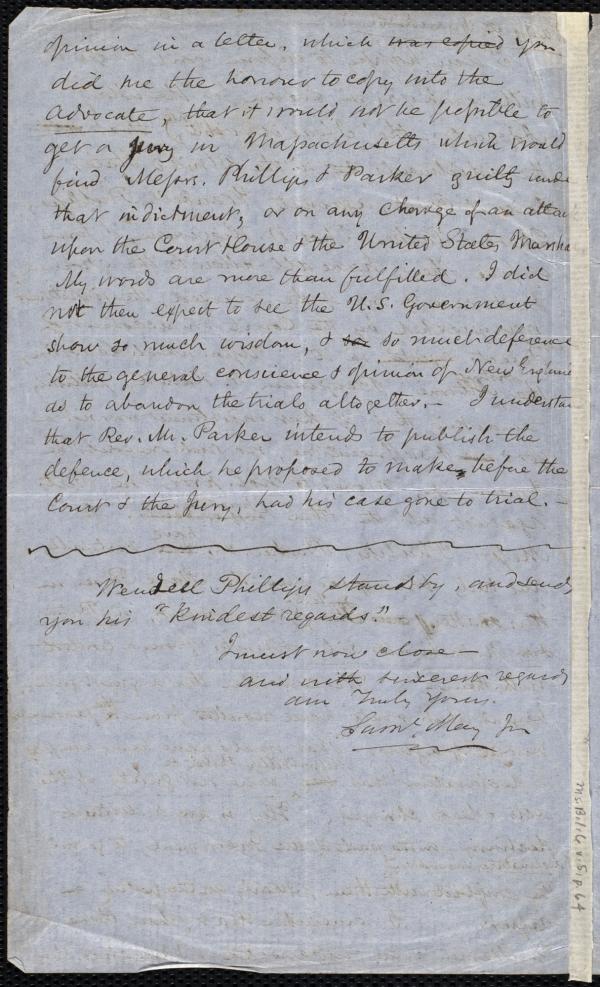 opinion in a letter, which was copied you
did me the honour to copy into the
Advocate, that it would not be possible to
get a jury in Massachusetts which would
find Messrs. Phillips & Parker guilty unde
that indictment, or on any charge of an attac
upon the Court House & the United States Marsha
My words are more than fulfilled. I did
not then expect to see the U.S. Government
show so much wisdom, & so so much deference
to the general conscience & opinion of New Englan
as to abandon the trials altogether. — I understan
that Rev. Mr. Parker intends to publish the
defence, which he proposed to make, before the
Court & the Jury, had his case gone to trial. —
Wendell Phillips stands by, and sends
you his "kindest regards."
I must now close —
and with sincerest regards
am Truly Yours.
Saml. May Jr
Ms. B.1.6 v.5, p. 64